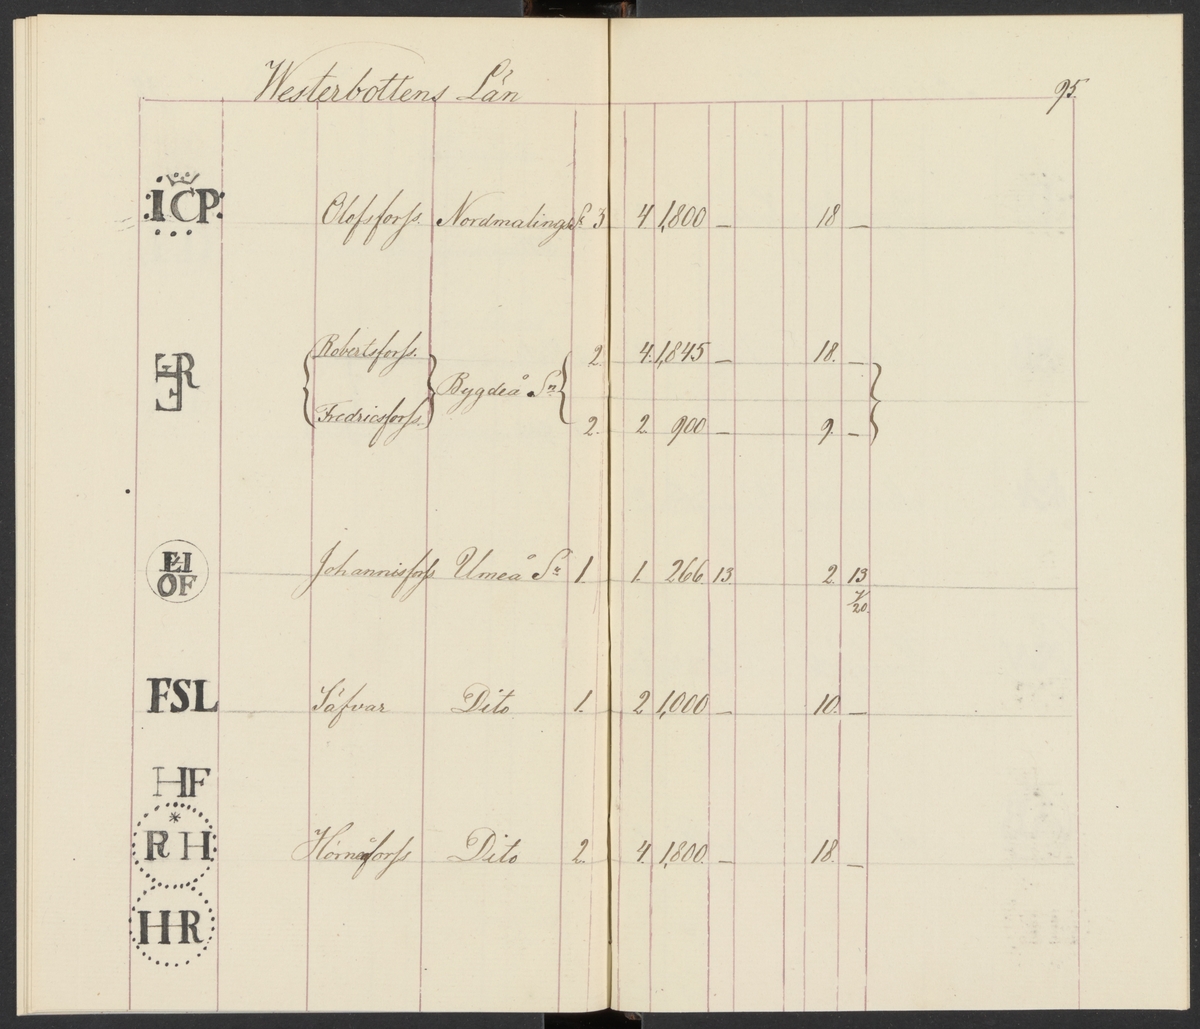 Westerbottens Län 95.
ICP Olofsforss. Nordmalings Sn 3 4 1,800 — 18 —
Robertsforss. 2. 4. 1,845 — 18. —
R Bygdeå Sn
Fredricsforss. 2. 2 900 — 9. —
OF Johannisforss Umeå Sn 1. 1. 266 13. 2. 13
7/20.
FSL Säfvar Dito 1. 2 1,000 — 10. —
HF
RH Hörneforss Dito 2. 4. 1,800. — 18. —
HR